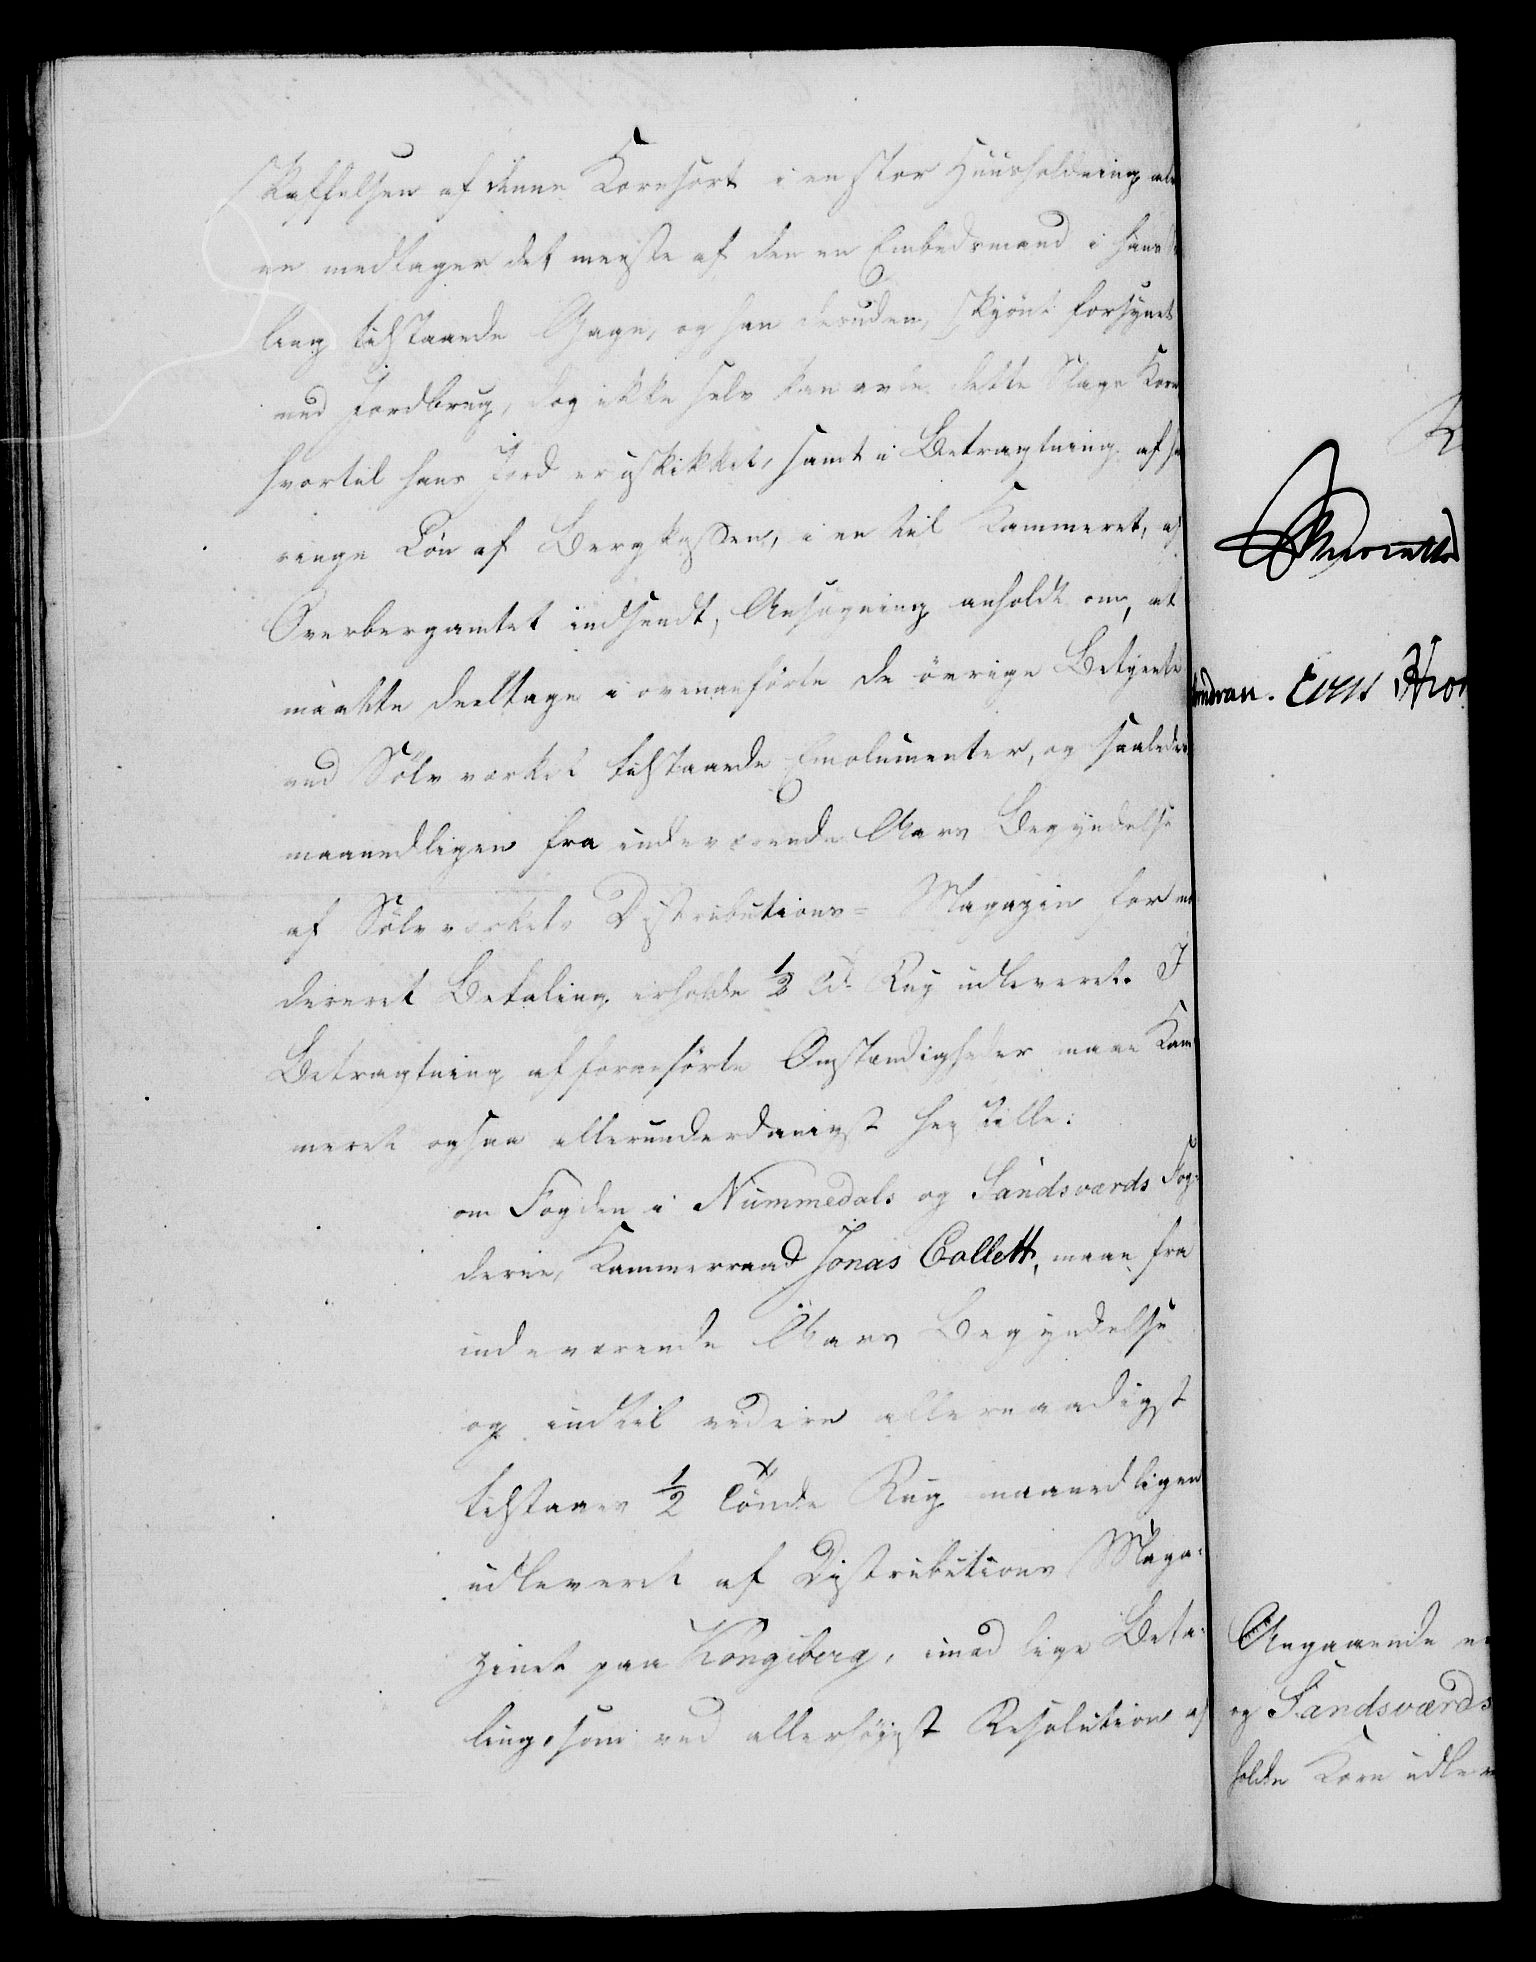 skaffelsen af denne Kornsort i en stor Huusholdning ale
ne medtager det meeste af den en Embedsmand i hans
ling tilstaaede Gage, og han desuden, skjönt forsynet
med Jordbrug, dog ikke selv kan avle dette Slags Korn
hvortil hans Jord er uskikket, samt i Betragtning af
ringe Lön af Bergkassen, i en til Kammeret, af
Overbergamtet indsendt, Ansögning anholdt om, at
maatte deeltage i ovenanförte de övrige Betjente
ved Sölvværket tilstaaede Emolumenter, og saaledes
maanedligen fra indeværende Aars Begyndelse
af Sölvværkets Distributions- Magazin for
dereret Betaling erholde ½ Td. Rug udleveret. I
Betragtning af foranförte Omstændigheder maae Kam
meret ogsaa allerunderdanigst henstille:
om Fogden i Nummedals og Sandsværds Fog-
derie, Kammerraad Jonas Collett, maae fra
indeværende Aars Begyndelse
og indtil videre allernaadigst
tilstaaes ½ Tönde Rug maanedligen
udleveret af Distributions Maga-
zinet paa Kongsberg, imod lige Beta-
ling, som ved allerhöjest Resolution af
Angaaende
og Sandsværds
holde Korn udle